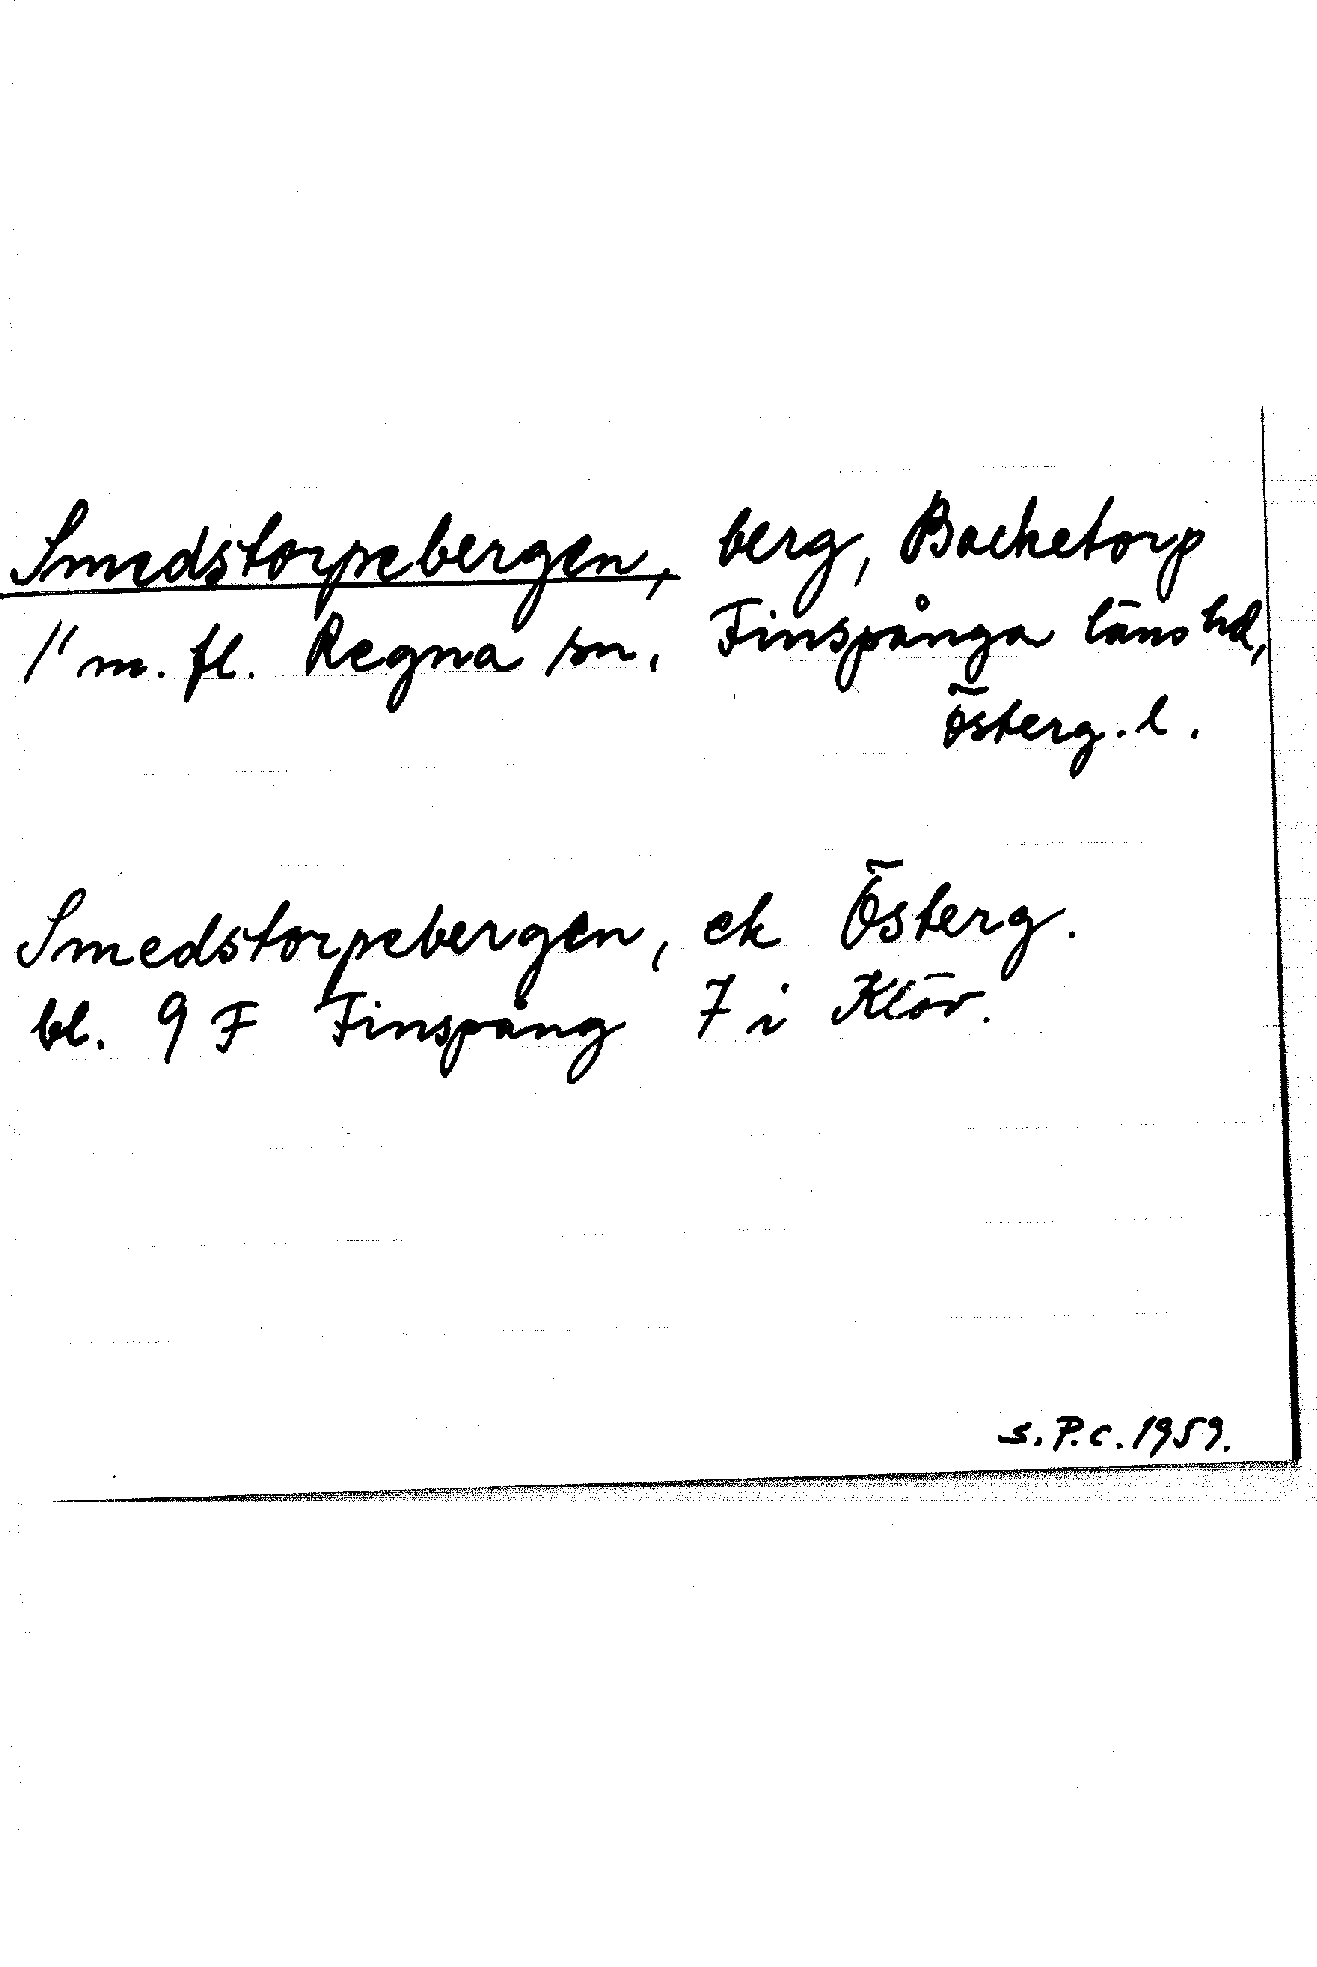 Smedstorpebergen, berg, Backetorp
1" m. fl. Regna sn, Finspånga läns hd,
Österg. l.
Smedstorpebergen, ek Österg.
bl. 9 F Finspång 7 i Klöv.
s. P. c. 1959.